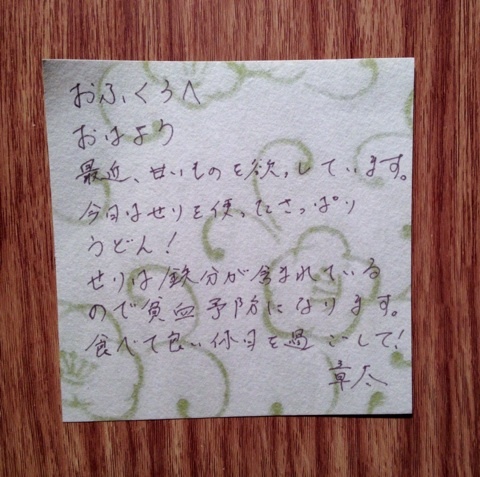 おふくろへ
おはよう
最近、甘いものを欲っしています。
今日はせりを使ったさっぱり
うどん!
せりは鉄分が含まれている
ので貧血予防になります。
食べて良い休日を過ごして!
章太